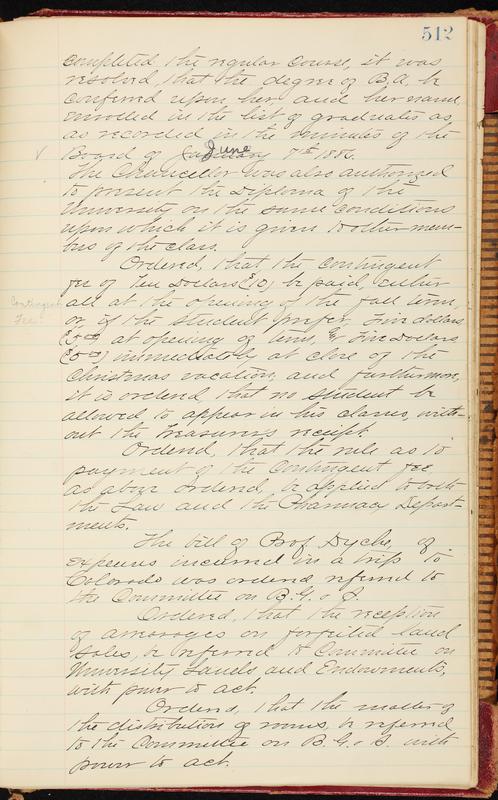 512
completed the regular course, it was
resolved that the degree of B.A. be
conferred upon her, and her name
enrolled in the list of graduates as,
as recorded in the minutes of the
Board of January June 7th 1886.
The Chancellor was also authorized
to present the diploma of the
University on the same conditions
upon which it is given to other mem-
bers of the class.
Ordered, that the contingent
fee of ten dollars ($10) be paid, either
all at the opening of the fall term,
or if the student prefer Five dollars
($5.00) at opening of term, & Five dollars
($5.00) immediately at close of the
Christmas vacation, and furthermore,
it is ordered that no student be
allowed to appear in his classes, with-
out the Treasurer's receipt.
Contingent
Fee
Ordered, that the rule as to
payment of the contingent fee,
as above ordered, be applied to both
the Law and the Pharmacy Depart-
ments.
The bill of Prof. Dyche, of
expenses incurred in a trip to
Colorado was ordered referred to
the Committee on B. G. & S.
Ordered, that the reception
of arrearages on forfeited land
sales, be referred to Committee on
University Lands and Endowments,
with power to act.
Ordered, that the matter of
the distribution of rooms, be referred
to the Committee on B. G. & S. with
power to act.